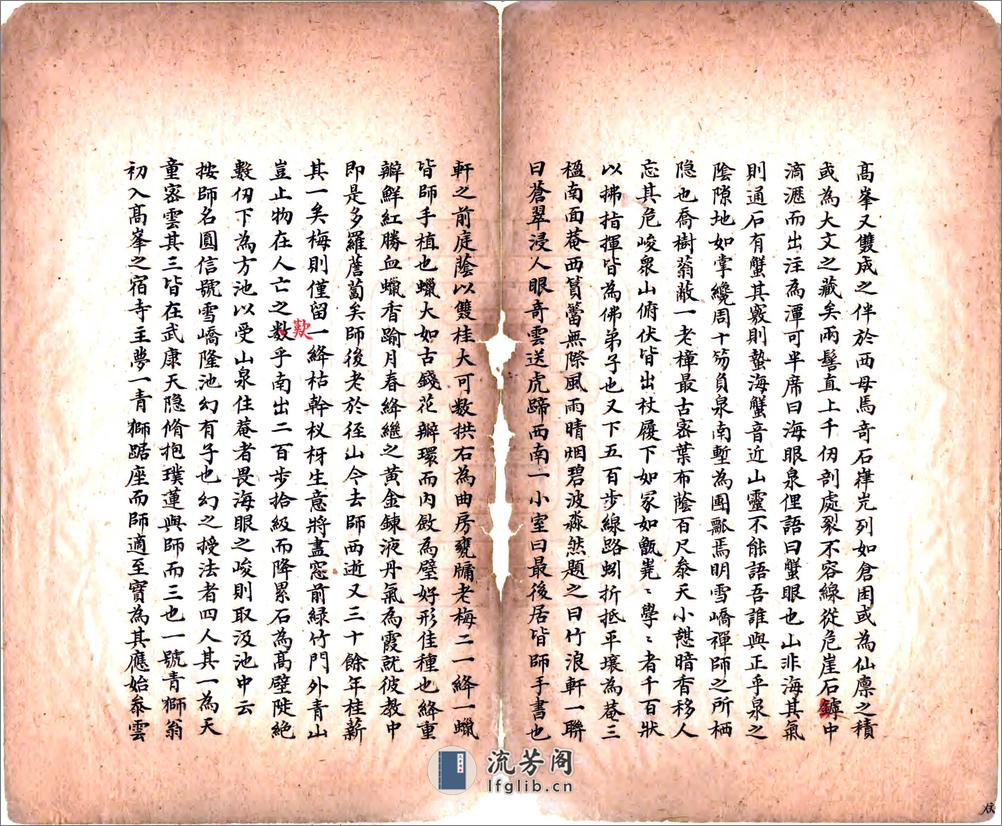 高峯又雙成之伴於西母馬奇石嵂岏列如倉囷或為仙廪之積
或為大文之藏矣兩髻直上千仞剖處裂不容線從危崖石罅中
滴瀝而出注為潭可半席曰海眼泉俚語曰蟹眼也山非海其氣
則通石有蟹其竅則蟄海蟹音近山靈不能語吾誰與正乎泉之
陰隙地如掌纔周十笏負泉南塹為團瓢焉明雪嶠禪師之所栖
隱也喬樹蓊蔽一老樟最古密葉布蔭百尺叅天小憇暗香移人
忘其危峻衆山俯伏皆出杖屨下如冢如甑嵬〻學〻者千百狀
以拂指揮皆為佛弟子也又下五百步線路蚓折抵平壤為菴三
楹南面菴西篔簹無際風雨晴烟碧波淼然題之曰竹浪軒一聯
曰蒼翠浸人眼奇雲送虎蹄西南一小室曰最後居皆師手書也
軒之前庭蔭以雙桂大可数拱石為曲房甕牖老梅二一絳一蠟
皆師手植也蠟大如古錢花瓣環而内斂為璧好形佳種也絳重
瓣鮮紅勝血蠟香踰月春絳繼之黄金鍊液丹氣為霞就彼教中
即是多羅薝蔔矣師後老於徑山今去師西逝又三十餘年桂薪
其一矣梅則僅留一絳枯幹杈枒生意將盡窓前緑竹門外青山
豈止物在人亡之数乎南出二百步拾級而降累石為高壁陡絶
歎
數仞下為方池以受山泉住菴者畏海眼之峻則取汲池中云
按師名圓信號雪嶠隆池幻有子也幻之授法者四人其一為天
童密雲其三皆在武康天隐脩抱璞蓮與師而三也一號青獅翁
初入高峯之宿寺主夢一青獅踞座而師適至實為其應始叅雲
流芳阁
lfglib.cn